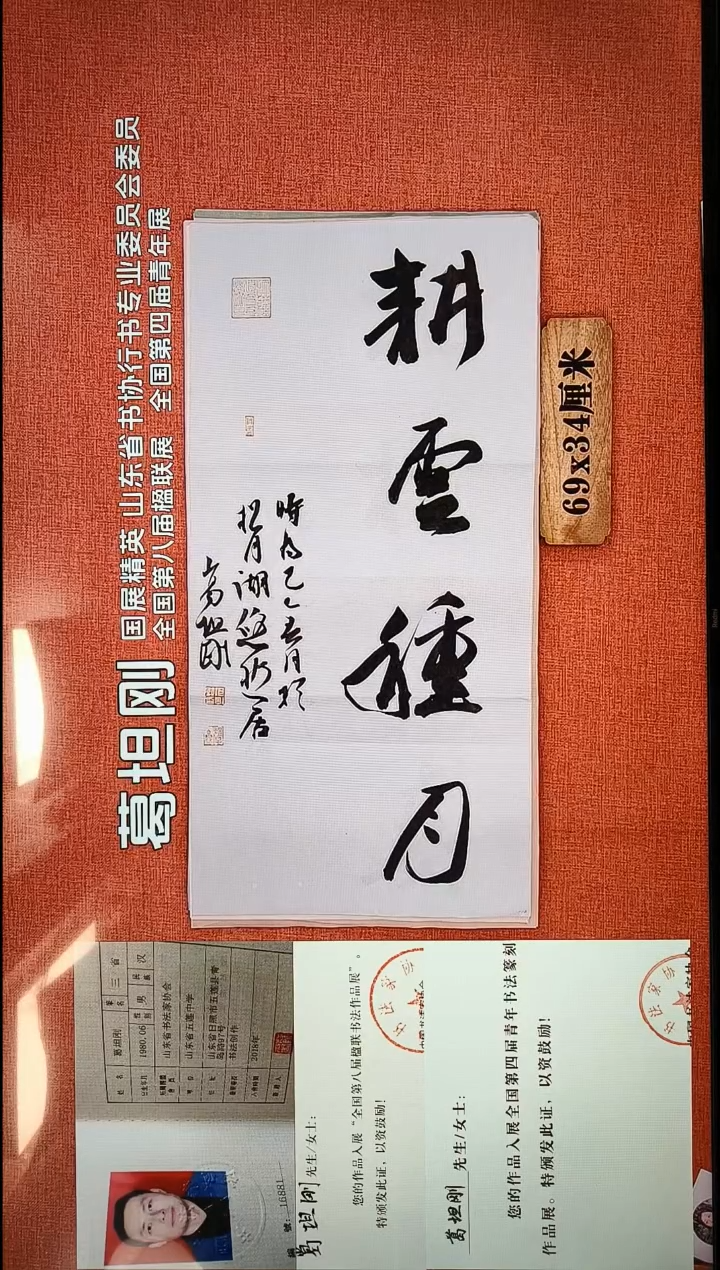 葛坦刚
国展精英 山东省书协行书专业委员会委员
全国第八届楹联展 全国第四届青年展
耕雲種月
時為乙巳
松月湖
葛坦刚
69x34厘米
姓名 葛坦刚 三省
出生年月 1980.06 性别 男 民族 汉
山东省书法家协会
山东省五莲中学
山东省日照市五莲县青
岛路97号
书法创作
2018年
编号: 16881
葛坦刚 先生/女士:
您的作品入展“全国第八届楹联书法作品展”。
特颁发此证，以资鼓励!
葛坦刚 先生/女士:
您的作品入展全国第四届青年书法篆刻
作品展。特颁发此证，以资鼓励!